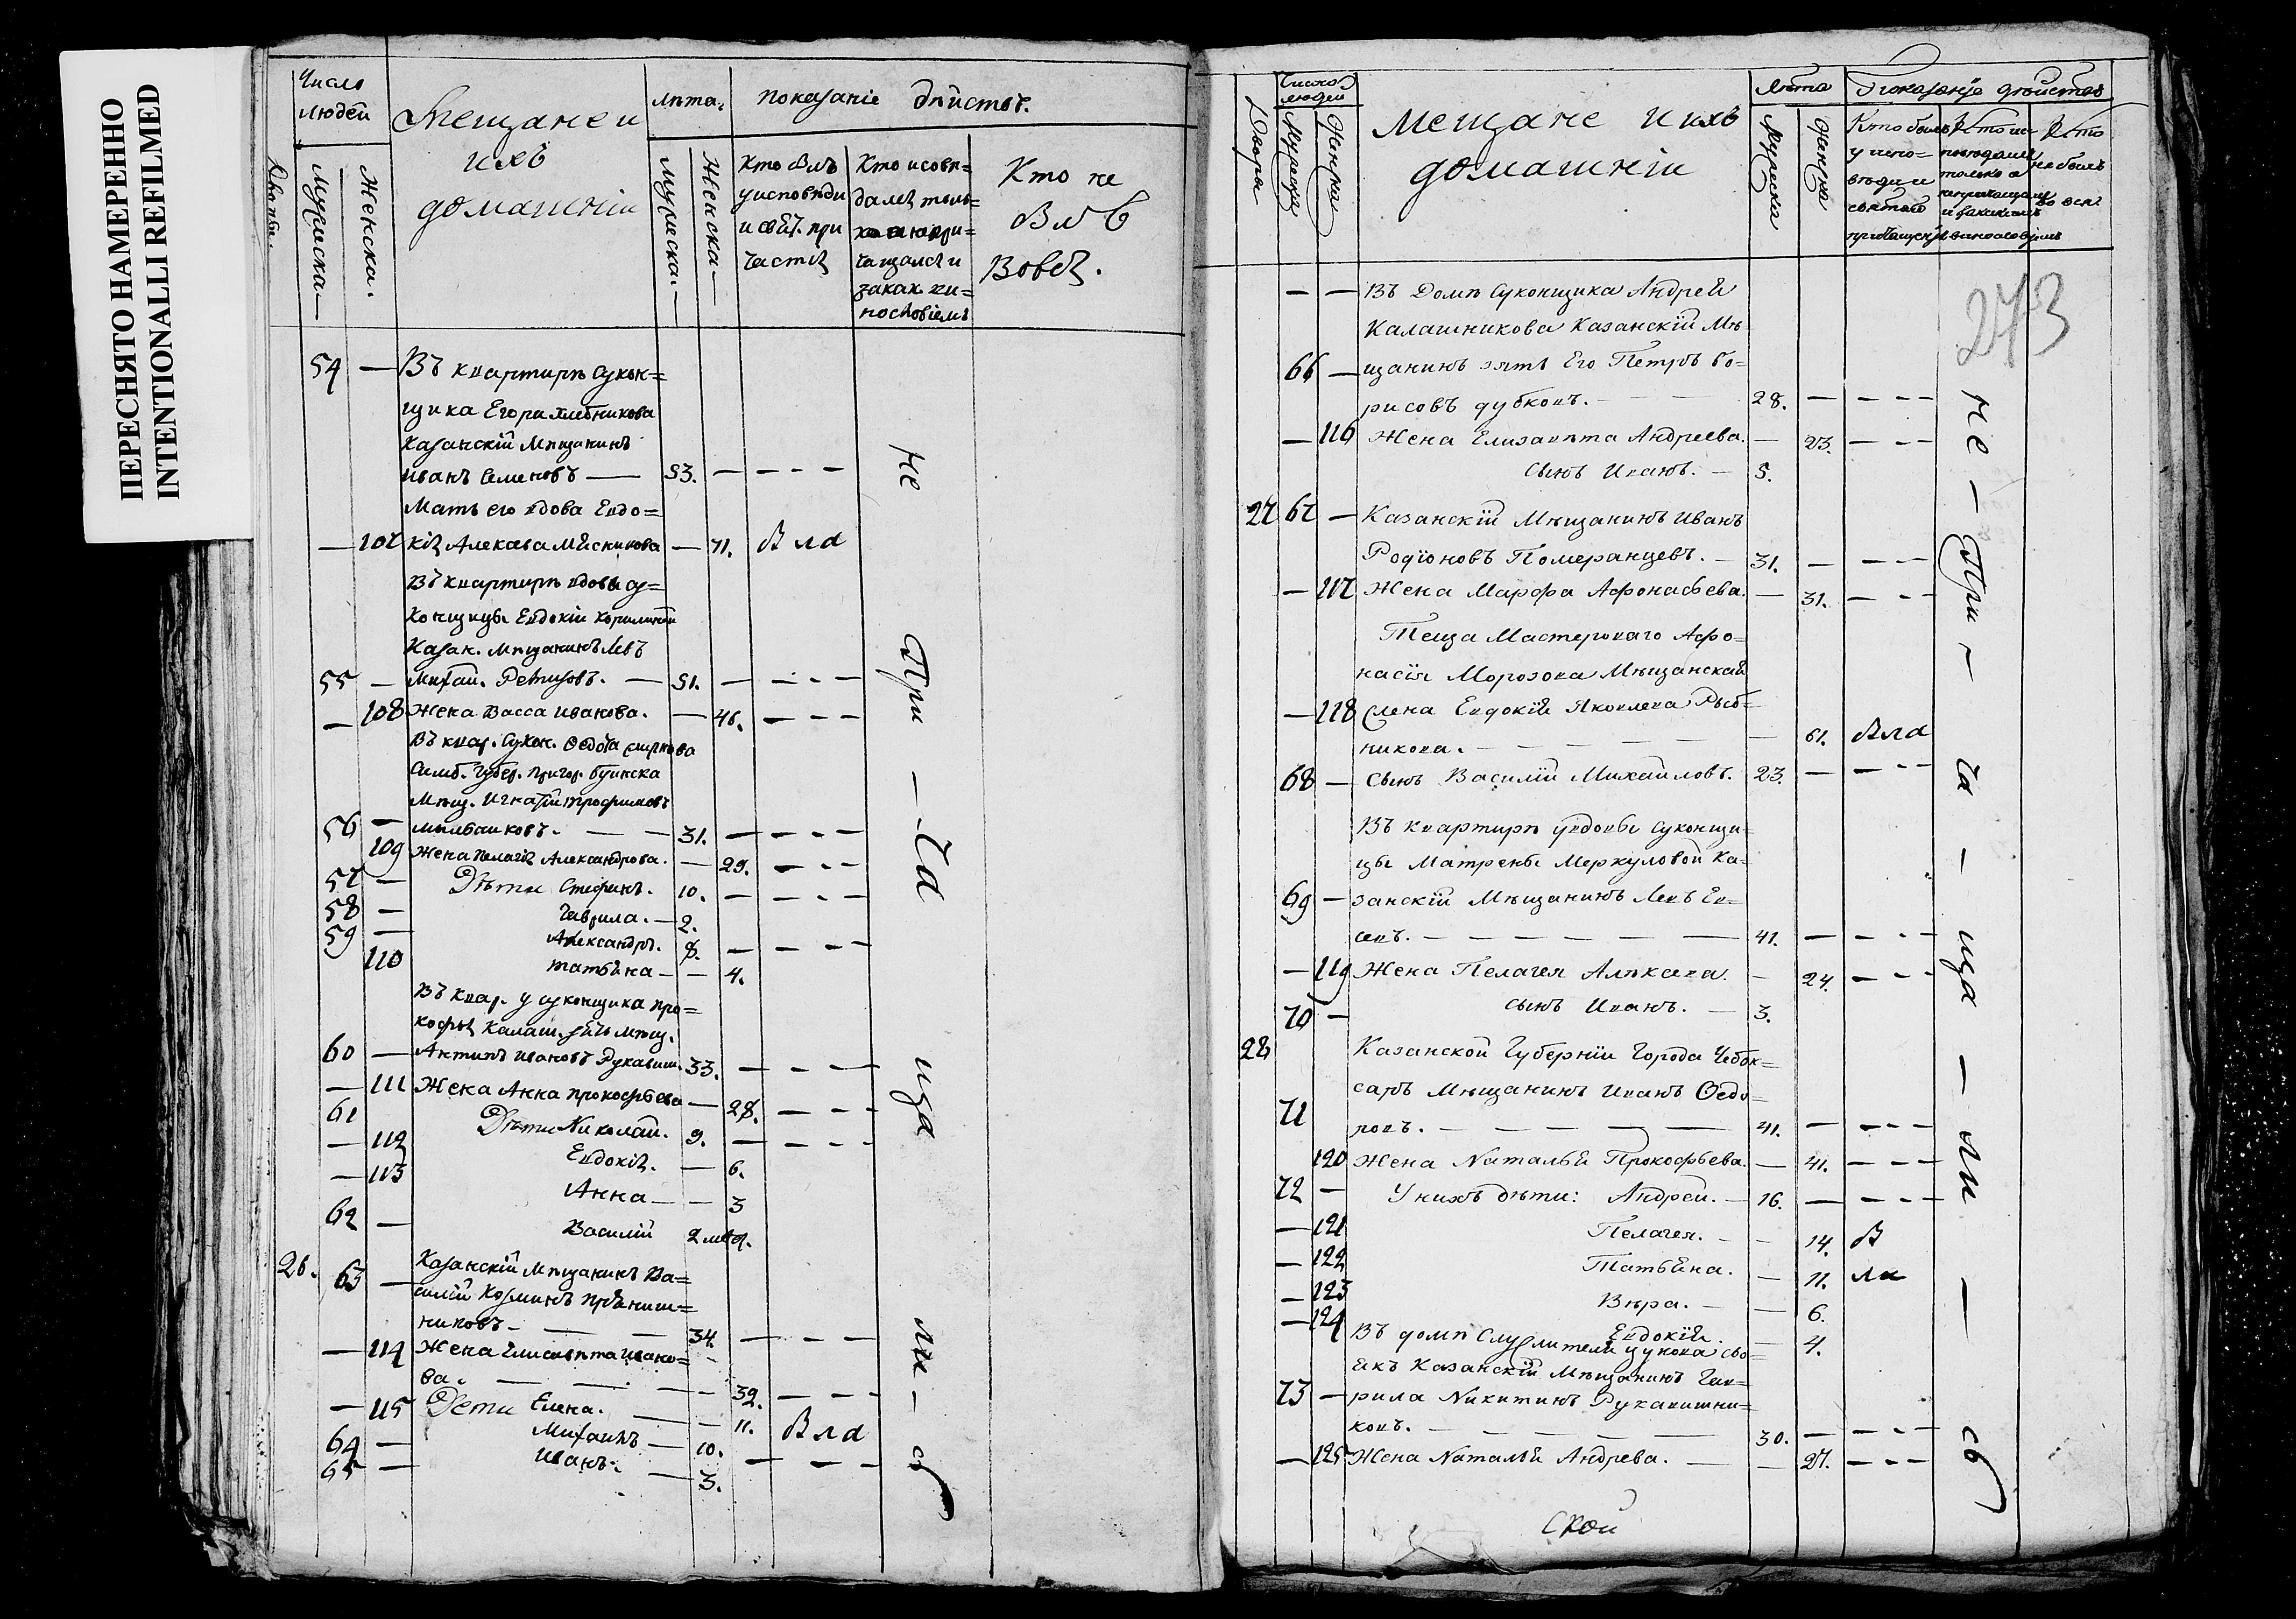 ПЕРЕСНЯТО НАМЕРЕННО
INTENTIONALLI REFILMED
Число людей
Мужеска
Женска.
Мещане и
ихъ
домашнїи
лѣта.
Мужеска.
Женска
показанїе дѣйствъ.
Кто былъ
у исповѣди
и свят. при
частїя
Кто исповѣ=
дался толь=
ко а непри=
чащался и
за каким ви=
нословїемъ
Кто не
былъ
Вовсе.
54 — Въ квартирѣ сукон=
щика Егора Хлебникова
Казанскїй Мѣщанинъ
Иванъ Семеновъ — 53. — — — —
Мать его вдова Евдо=
— 107 кїя Алексева Мясникова — 71. Была
Въ квартирѣ вдовы су=
конщицы Евдокїи
Казан. Мѣщанинъ Левъ
55 — Михай. Ремизовъ. — 51. — — — —
— 108 Жена Васса Иванова. — 46. — — —
Въ квар. Сукон. Ѳедота Смирнова
Симб. Губер. Пригор. Буинска
Мѣщ. Игнатїй Трофимовъ
56 — 31. — — — —
109 Жена Пелагїя Александрова. — 29. — — —
57 — Дѣти Стефанъ. 10. — — — —
58 — Гаврила. — 2.
59 — Александръ. 8. — — — —
110 Татьяна — — 4.
Въ квар. у суконщика Про=
кофья Калаш. Мѣщ.
60 — Антипъ Ивановъ Рукавиш. 33. — — — —
— 111 Жена Анна Прокофьева — 28. — — —
61 Дѣти Николай. 9. — — — —
— 112 Евдокїя. — 6.
— 113 Анна — — 3
62 — Василїй 2 мес.
26. 63 — Казанскїй Мѣщанинъ Ва=
силїй Козминъ Пряниш=
никовъ — — — 34. — — —
— 114 Жена Елисавѣта Ивано=
ва. — — — — 32. — — —
— 115 Дети Елена. — — 11. Была
64 — Михаилъ — 10.
65 — Иванъ. — 3. — — — —
не При — — ча ща ли — сь
Дворы
Число людей
Мужеска
Женска
Мещане и ихъ
домашнїи
Лѣта
Мужеска
Женска
Показанїе дѣйствъ
Кто былъ
у испо=
вѣди и
святаго
причащенїя
Кто
не былъ
273
— — Въ Домѣ Суконщика Андрея
Калашникова Казанскїй Мѣ=
66 — щанинъ зять Его Петръ Бо=
рисовъ Дубковъ. — 28. — — — —
— 116 Жена Елизавѣта Андреева. — 23. — — —
сынъ Иванъ. — 5.
27 67 — Казанскїй Мѣщанинъ Иванъ
Родїоновъ Померанцевъ. — 31. — — — —
— 117 Жена Марфа Афонасьева. — 31. — — —
Теща Мастероваго Афо=
насїя Морозова Мѣщанская
— 118 жена Евдокїя Яковлева Рыб=
никова. — — — — — 61. Была
68 — Сынъ Василїй Михайловъ. 23. — — — —
Въ квартирѣ у вдовы Суконщи=
цы Матрены Меркуловой Ка=
69 — занскїй Мѣщанинъ Левъ Ев=
севъ. — — — — — — 41. — — — —
— 119 Жена Пелагея Алѣксева. — 24. — — —
70 — сынъ Иванъ. — 3.
28 Казанской Губернїи Города Чебок=
саръ Мѣщанинъ Иванъ Ѳедо=
71 ровъ. — — — — — 41. — — — —
120 Жена Наталья Прокофьева. — 41. — — —
72 — У нихъ дѣти: Андрей. — 16. — — — —
— 121 Пелагея. — — 14. Бы
— 122 Татьяна. — 11. ли
— 123 Вѣра. — — 6.
— 124 Евдокїя. — 4.
Въ домѣ Служителя Цукова сво=
якъ Казанскїй Мѣщанинъ Гав=
73 — рила Никитинъ Рукавишни=
ковъ. — — — — — 30. — — — —
— 125 Жена Наталья Андрева. — — 27. — — —
не — При — ча — ща — ли — сь